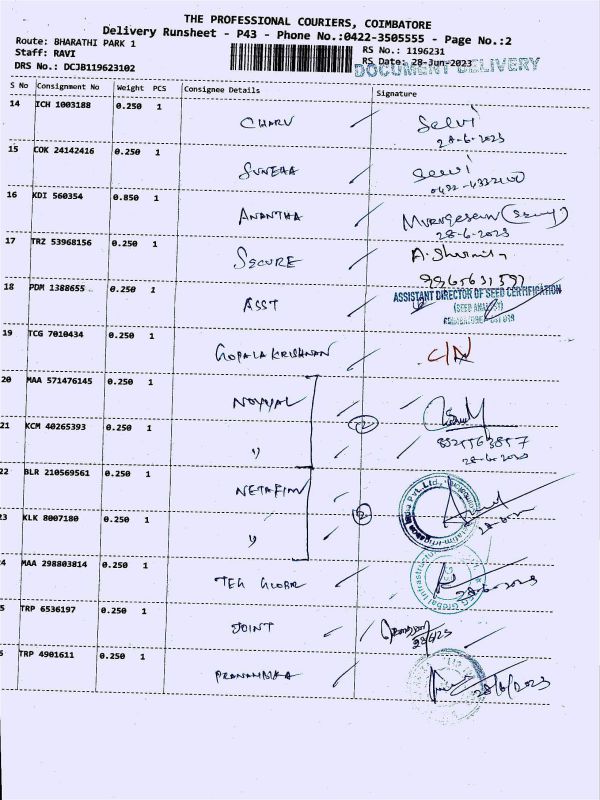 THE PROFESSIONAL COURIERS, COIMBATORE
Delivery Runsheet - P43 - Phone No.:0422-3505555 - Page No.:2
Route: BHARATHI PARK 1 RS No.: 1196231
Staff: RAVI RS Date: 28-Jun-2023
DRS No.: DCJB119623102 DOCUMENT DELIVERY
S No Consignment No Weight PCS Consignee Details Signature
14 ICH 1003188 0.250 1 CHARU Selvi
28-6-2023
15 COK 24142416 0.250 1 SUNEHA Selvi
0422-4332100
16 KDI 560354 0.850 1 ANANTHA Murugesan
28-6-2023
17 TRZ 53968156 0.250 1 SECURE
18 PDM 1388655 0.250 1 ASST
ASSISTANT DIRECTOR OF SEED CERTIFICATION
19 TCG 7010434 0.250 1 GOPALA KRISHNAN C/N
20 MAA 571476145 0.250 1 NOYYAL
21 KCM 40265393 0.250 1 " 2
28-6-2023
22 BLR 210569561 0.250 1 NETAFIM
23 KLK 8007180 0.250 1 " 2
4 MAA 298803814 0.250 1 TEG GLOBAL
28-6-2023
5 TRP 6536197 0.250 1 JOINT
28/6/23
6 TRP 4901611 0.250 1 PRANAMBIKA
28/6/2023